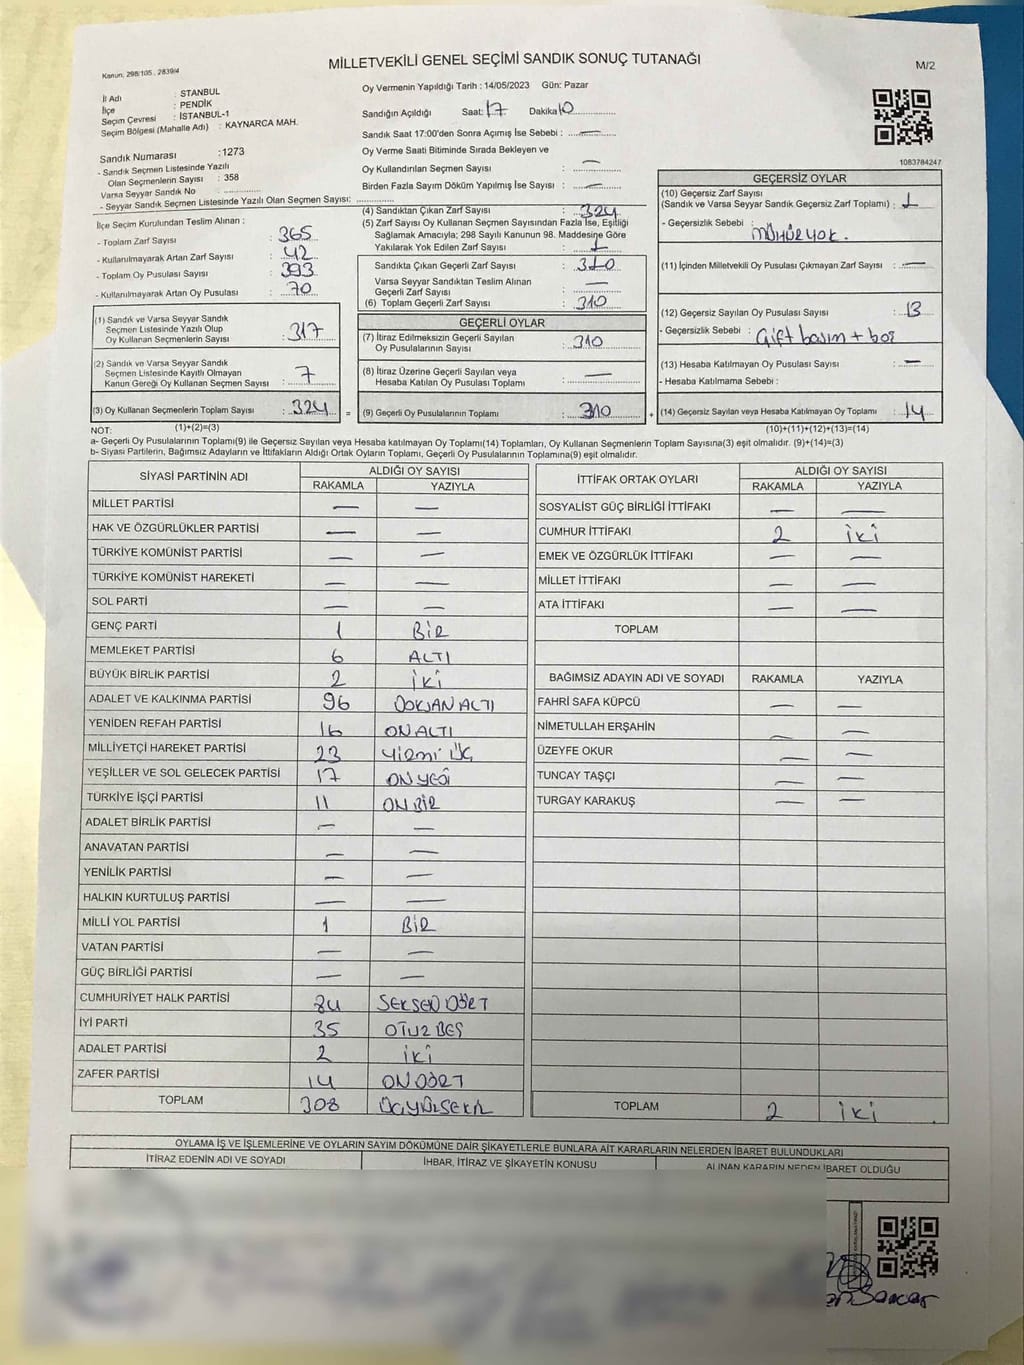 MİLLETVEKİLİ GENEL SEÇİMİ SANDIK SONUÇ TUTANAĞI
M/2
Kanun; 298/105 , 2839/4
İl Adı : STANBUL
İlçe : PENDİK
Seçim Çevresi : İSTANBUL-1
Seçim Bölgesi (Mahalle Adı) : KAYNARCA MAH.
Sandık Numarası :1273
- Sandık Seçmen Listesinde Yazılı
Olan Seçmenlerin Sayısı : 358
Varsa Seyyar Sandık No :
- Seyyar Sandık Seçmen Listesinde Yazılı Olan Seçmen Sayısı:
Oy Vermenin Yapıldığı Tarih : 14/05/2023 Gün: Pazar
Sandığın Açıldığı Saat: 17 Dakika 10
Sandık Saat 17:00'den Sonra Açımış İse Sebebi : —
Oy Verme Saati Bitiminde Sırada Bekleyen ve
Oy Kullandırılan Seçmen Sayısı : —
Birden Fazla Sayım Döküm Yapılmış İse Sayısı : —
1083784247
İlçe Seçim Kurulundan Teslim Alınan :
- Toplam Zarf Sayısı : 365
- Kullanılmayarak Artan Zarf Sayısı : 42
- Toplam Oy Pusulası Sayısı : 393
- Kullanılmayarak Artan Oy Pusulası : 70
(1) Sandık ve Varsa Seyyar Sandık
Seçmen Listesinde Yazılı Olup
Oy Kullanan Seçmenlerin Sayısı : 317
(2) Sandık ve Varsa Seyyar Sandık
Seçmen Listesinde Kayıtlı Olmayan
Kanun Gereği Oy Kullanan Seçmen Sayısı : 7
(3) Oy Kullanan Seçmenlerin Toplam Sayısı : 324 =
(4) Sandıktan Çıkan Zarf Sayısı : 324
(5) Zarf Sayısı Oy Kullanan Seçmen Sayısından Fazla İse, Eşitliği
Sağlamak Amacıyla; 298 Sayılı Kanunun 98. Maddesine Göre
Yakılarak Yok Edilen Zarf Sayısı :
Sandıkta Çıkan Geçerli Zarf Sayısı : 310
Varsa Seyyar Sandıktan Teslim Alınan
Geçerli Zarf Sayısı : —
(6) Toplam Geçerli Zarf Sayısı : 310
GEÇERLİ OYLAR
(7) İtiraz Edilmeksizin Geçerli Sayılan
Oy Pusulalarının Sayısı : 310
(8) İtiraz Üzerine Geçerli Sayılan veya
Hesaba Katılan Oy Pusulası Toplamı : —
(9) Geçerli Oy Pusulalarının Toplamı : 310 +
GEÇERSİZ OYLAR
(10) Geçersiz Zarf Sayısı
(Sandık ve Varsa Seyyar Sandık Geçersiz Zarf Toplamı) : 1
- Geçersizlik Sebebi : MÜHÜR YOK.
(11) İçinden Milletvekili Oy Pusulası Çıkmayan Zarf Sayısı : —
(12) Geçersiz Sayılan Oy Pusulası Sayısı : 13
- Geçersizlik Sebebi : Çift basım + boş
(13) Hesaba Katılmayan Oy Pusulası Sayısı : —
- Hesaba Katılmama Sebebi :
(14) Geçersiz Sayılan veya Hesaba Katılmayan Oy Toplamı : 14
NOT: (1)+(2)=(3) (10)+(11)+(12)+(13)=(14)
a- Geçerli Oy Pusulalarının Toplamı(9) ile Geçersiz Sayılan veya Hesaba katılmayan Oy Toplamı(14) Toplamları, Oy Kullanan Seçmenlerin Toplam Sayısına(3) eşit olmalıdır. (9)+(14)=(3)
b- Siyasi Partilerin, Bağımsız Adayların ve İttifakların Aldığı Oyların Toplamı, Geçerli Oy Pusulalarının Toplamına(9) eşit olmalıdır.
SİYASİ PARTİNİN ADI ALDIĞI OY SAYISI
RAKAMLA YAZIYLA
MİLLET PARTİSİ — —
HAK VE ÖZGÜRLÜKLER PARTİSİ — —
TÜRKİYE KOMÜNİST PARTİSİ — —
TÜRKİYE KOMÜNİST HAREKETİ — —
SOL PARTİ — —
GENÇ PARTİ 1 BİR
MEMLEKET PARTİSİ 6 ALTI
BÜYÜK BİRLİK PARTİSİ 2 İKİ
ADALET VE KALKINMA PARTİSİ 96 DOKSAN ALTI
YENİDEN REFAH PARTİSİ 16 ON ALTI
MİLLİYETÇİ HAREKET PARTİSİ 23 YİRMİ ÜÇ
YEŞİLLER VE SOL GELECEK PARTİSİ 17 ON YEDİ
TÜRKİYE İŞÇİ PARTİSİ 11 ON BİR
ADALET BİRLİK PARTİSİ — —
ANAVATAN PARTİSİ — —
YENİLİK PARTİSİ — —
HALKIN KURTULUŞ PARTİSİ — —
MİLLİ YOL PARTİSİ 1 BİR
VATAN PARTİSİ — —
GÜÇ BİRLİĞİ PARTİSİ — —
CUMHURİYET HALK PARTİSİ 84 SEKSEN DÖRT
İYİ PARTİ 35 OTUZ BEŞ
ADALET PARTİSİ 2 İKİ
ZAFER PARTİSİ 14 ON DÖRT
TOPLAM 308 ÜÇYÜZSEKİZ
İTTİFAK ORTAK OYLARI ALDIĞI OY SAYISI
RAKAMLA YAZIYLA
SOSYALİST GÜÇ BİRLİĞİ İTTİFAKI — —
CUMHUR İTTİFAKI 2 İKİ
EMEK VE ÖZGÜRLÜK İTTİFAKI — —
MİLLET İTTİFAKI — —
ATA İTTİFAKI — —
TOPLAM
BAĞIMSIZ ADAYIN ADI VE SOYADI RAKAMLA YAZIYLA
FAHRİ SAFA KÜPCÜ — —
NİMETULLAH ERŞAHİN — —
ÜZEYFE OKUR — —
TUNCAY TAŞÇI — —
TURGAY KARAKUŞ — —
TOPLAM 2 İKİ
OYLAMA İŞ VE İŞLEMLERİNE VE OYLARIN SAYIM DÖKÜMÜNE DAİR ŞİKAYETLERLE BUNLARA AİT KARARLARIN NELERDEN İBARET BULUNDUKLARI
İTİRAZ EDENİN ADI VE SOYADI İHBAR, İTİRAZ VE ŞİKAYETİN KONUSU ALINAN KARARIN NEDEN İBARET OLDUĞU